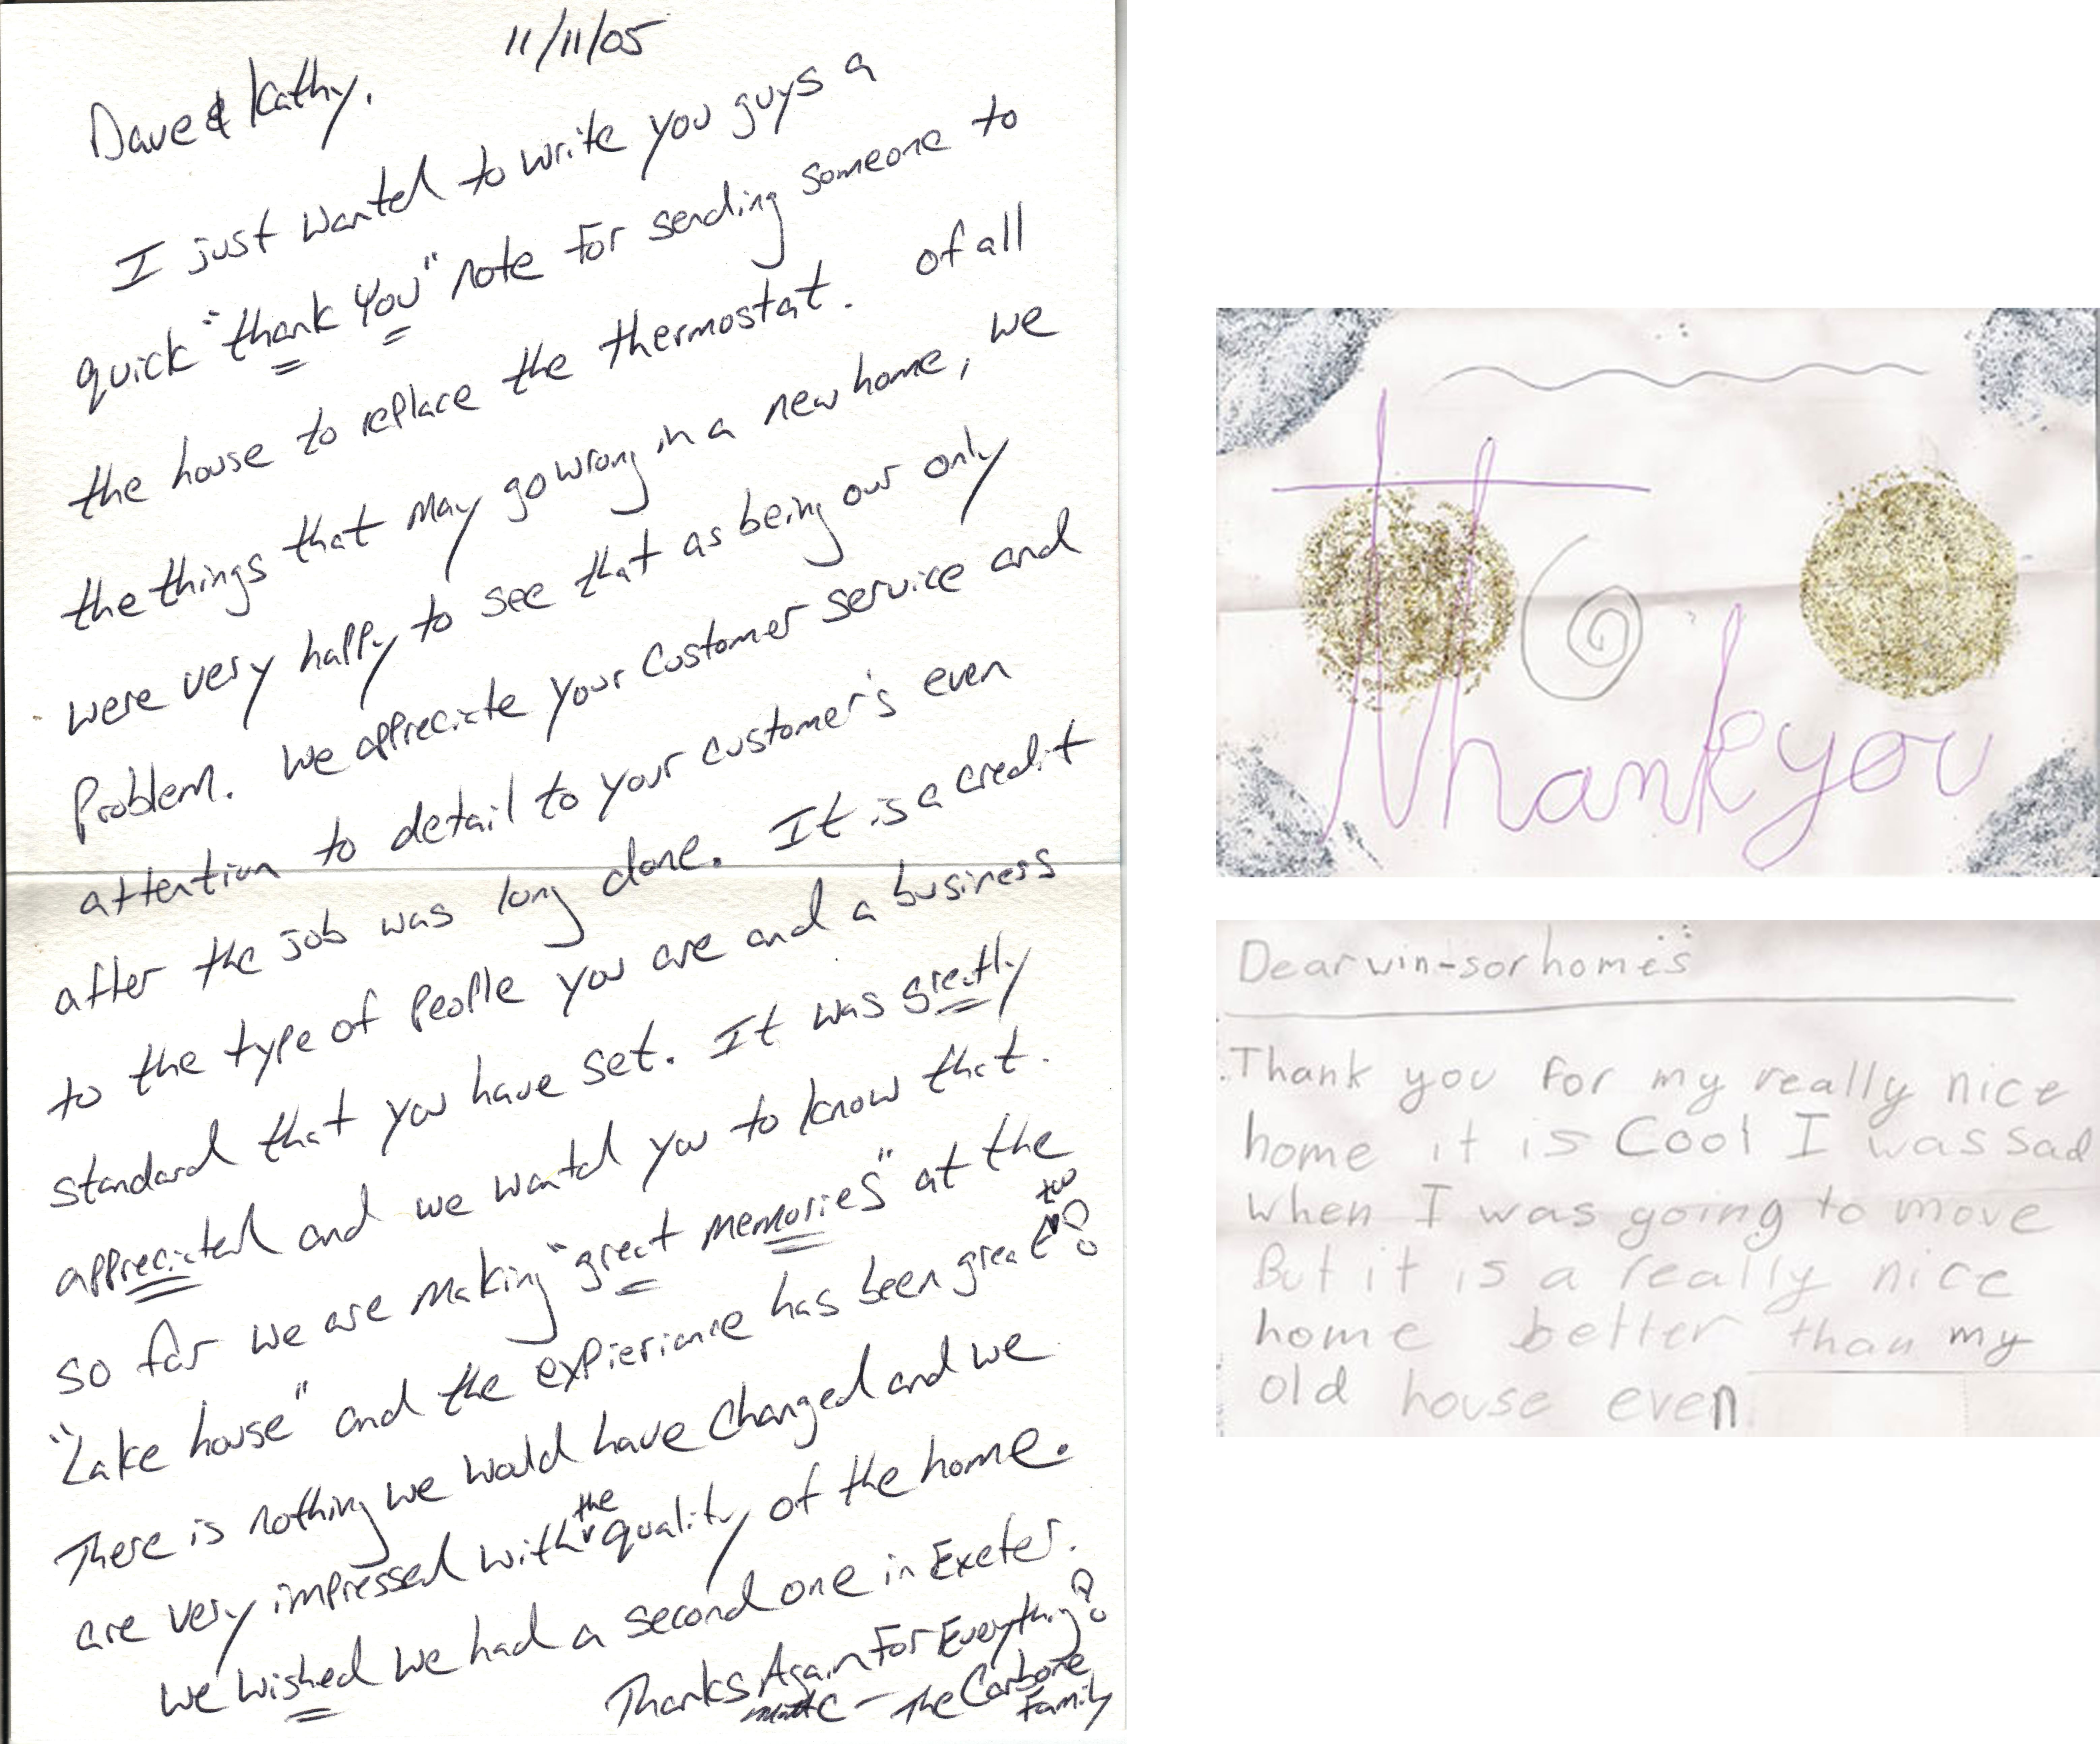 11/11/05
Dave & Kathy.
I just wanted to write you guys a
quick "thank you" note for sending someone to
the house to replace the thermostat. of all
the things that may go wrong in a new home, we
were very happy to see that as being our only
Problem. We appreciate your customer service and
attention to detail to your customer's even
after the job was long done. It is a credit
to the type of people you are and a business
standard that you have set. It was greatly
appreciated and we wanted you to know that.
so far we are making "great memories" at the
"Lake house" and the expieriance has been great too!
There is nothing we would have changed and we
are very impressed with the quality of the home.
We wished we had a second one in Exeter.
Thanks Again For Everything!
Matt C – The Carbone
Family
Thank you
Dear win-sor homes
Thank you for my really nice
home it is Cool I was sad
when I was going to move
But it is a really nice
home better than my
old house even